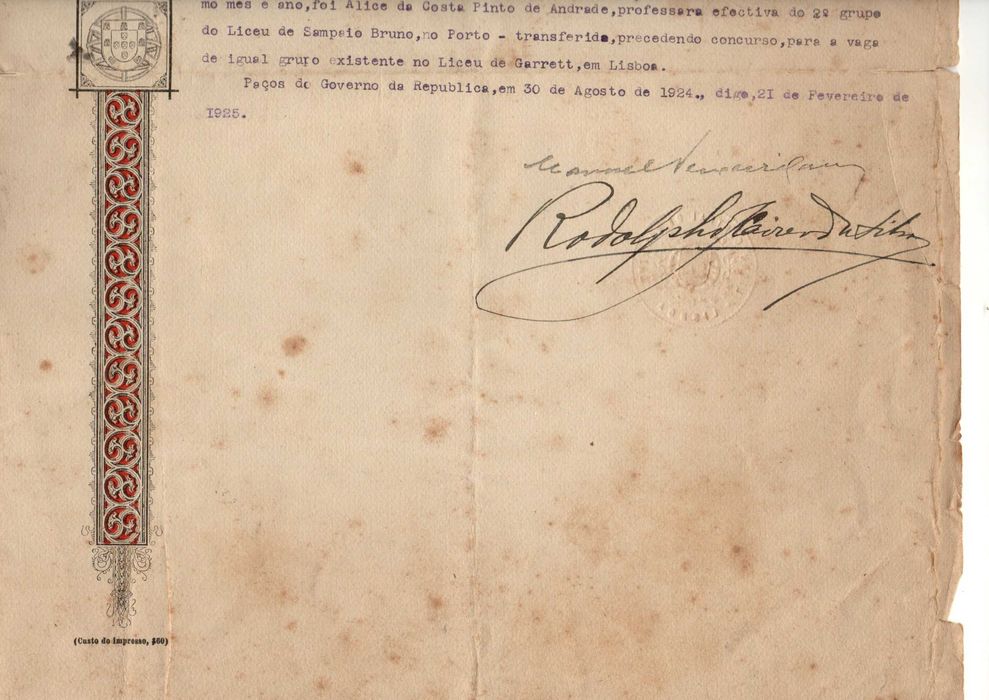 mo mes e ano,foi Alice da Costa Pinto de Andrade,professara efectiva do 2º grupo
do Liceu de Sampaio Bruno,no Porto - transferida,precedendo concurso,para a vaga
de igual grupo existente no Liceu de Garrett,em Lisboa.
Paços do Governo da Republica,em 30 de Agosto de 1924., digo,21 de Fevereiro de
1925.
Manuel
Rodolpho Xavier da Silva
(Custo do impresso, $60)